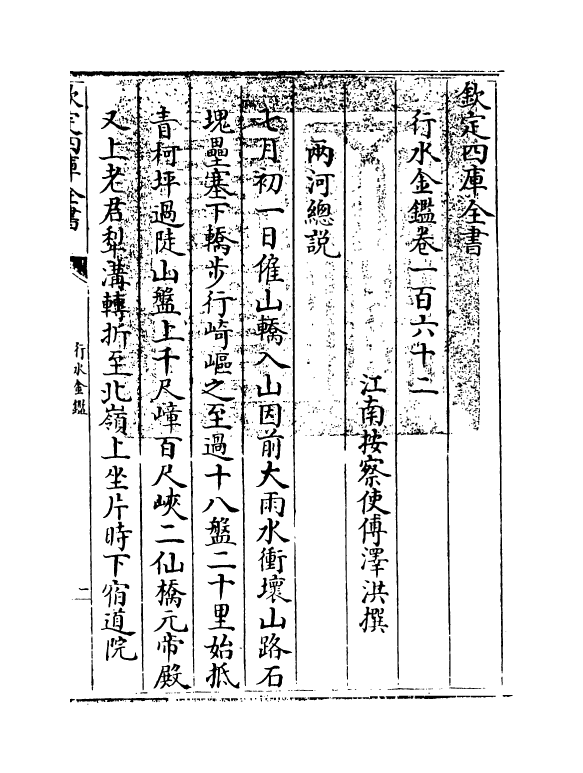 欽定四庫全書
行水金鑑卷一百六十二
江南按察使傅澤洪撰
兩河總説
七月初一日僱山轎入山因前大雨水衝壞山路石
塊壘塞下轎步行崎嶇之至過十八盤二十里始抵
青柯坪過陡山盤上千尺㠉百尺峽二仙橋元帝殿
又上老君犁溝轉折至北嶺上坐片時下宿道院
欽定四庫全書
行水金鑑
二